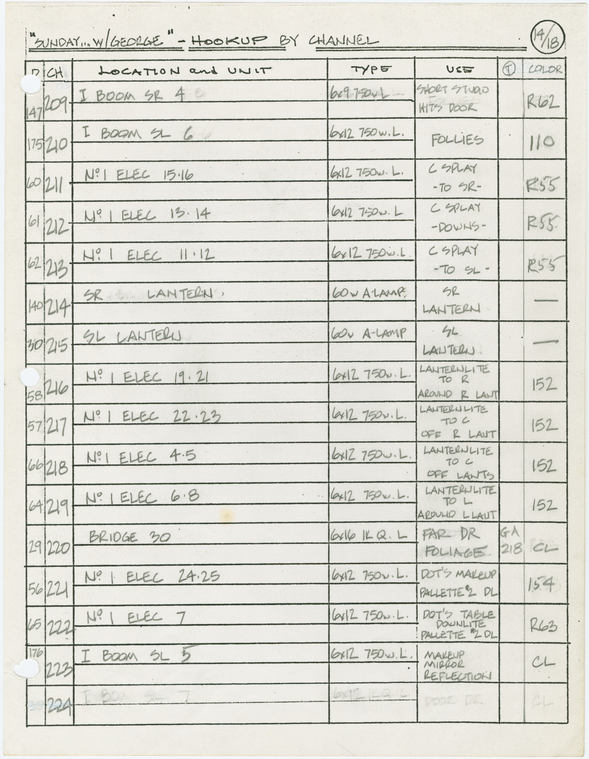 "SUNDAY... W/GEORGE" - HOOKUP BY CHANNEL 14/18
D CH LOCATION and UNIT TYPE USE T COLOR
147 209 I BOOM SR 4 6x9 750w L SHORT STUDIO HITS DOOR R62
175 210 I BOOM SL 6 6x12 750 W.L. FOLLIES 110
60 211 Nº 1 ELEC 15·16 6x12 750w.L. C SPLAY -TO SR- R55
61 212 Nº 1 ELEC 13·14 6x12 750w.L C SPLAY -DOWNS- R55
62 213 Nº 1 ELEC 11·12 6x12 750w.L. C SPLAY -TO SL- R55
140 214 SR LANTERN. 60w A-LAMP. SR LANTERN —
215 SL LANTERN 60w A-LAMP SL LANTERN —
58 216 Nº 1 ELEC 19·21 6x12 750w.L. LANTERNLITE TO R AROUND R LANT 152
57 217 Nº 1 ELEC 22·23 6x12 750w.L. LANTERNLITE TO C OFF R LANT 152
66 218 Nº 1 ELEC 4·5 6x12 750w.L. LANTERNLITE TO C OFF LANTS 152
64 219 Nº 1 ELEC 6·8 6x12 750w.L. LANTERNLITE TO L AROUND L LANT 152
29 220 BRIDGE 30 6x16 1K Q. L FAR DR FOLIAGE GA 218 CL
56 221 Nº 1 ELEC 24·25 6x12 750w.L. DOT'S MAKEUP PALLETTE #2 DL 154
65 222 Nº 1 ELEC 7 6x12 750w.L. DOT'S TABLE DOWNLITE PALLETTE #2 DL R63
176 223 I BOOM SL 5 6x12 750w.L. MAKEUP MIRROR REFLECTION CL
224 I BOOM SL 7 6x12 1K Q L DOOR DR CL